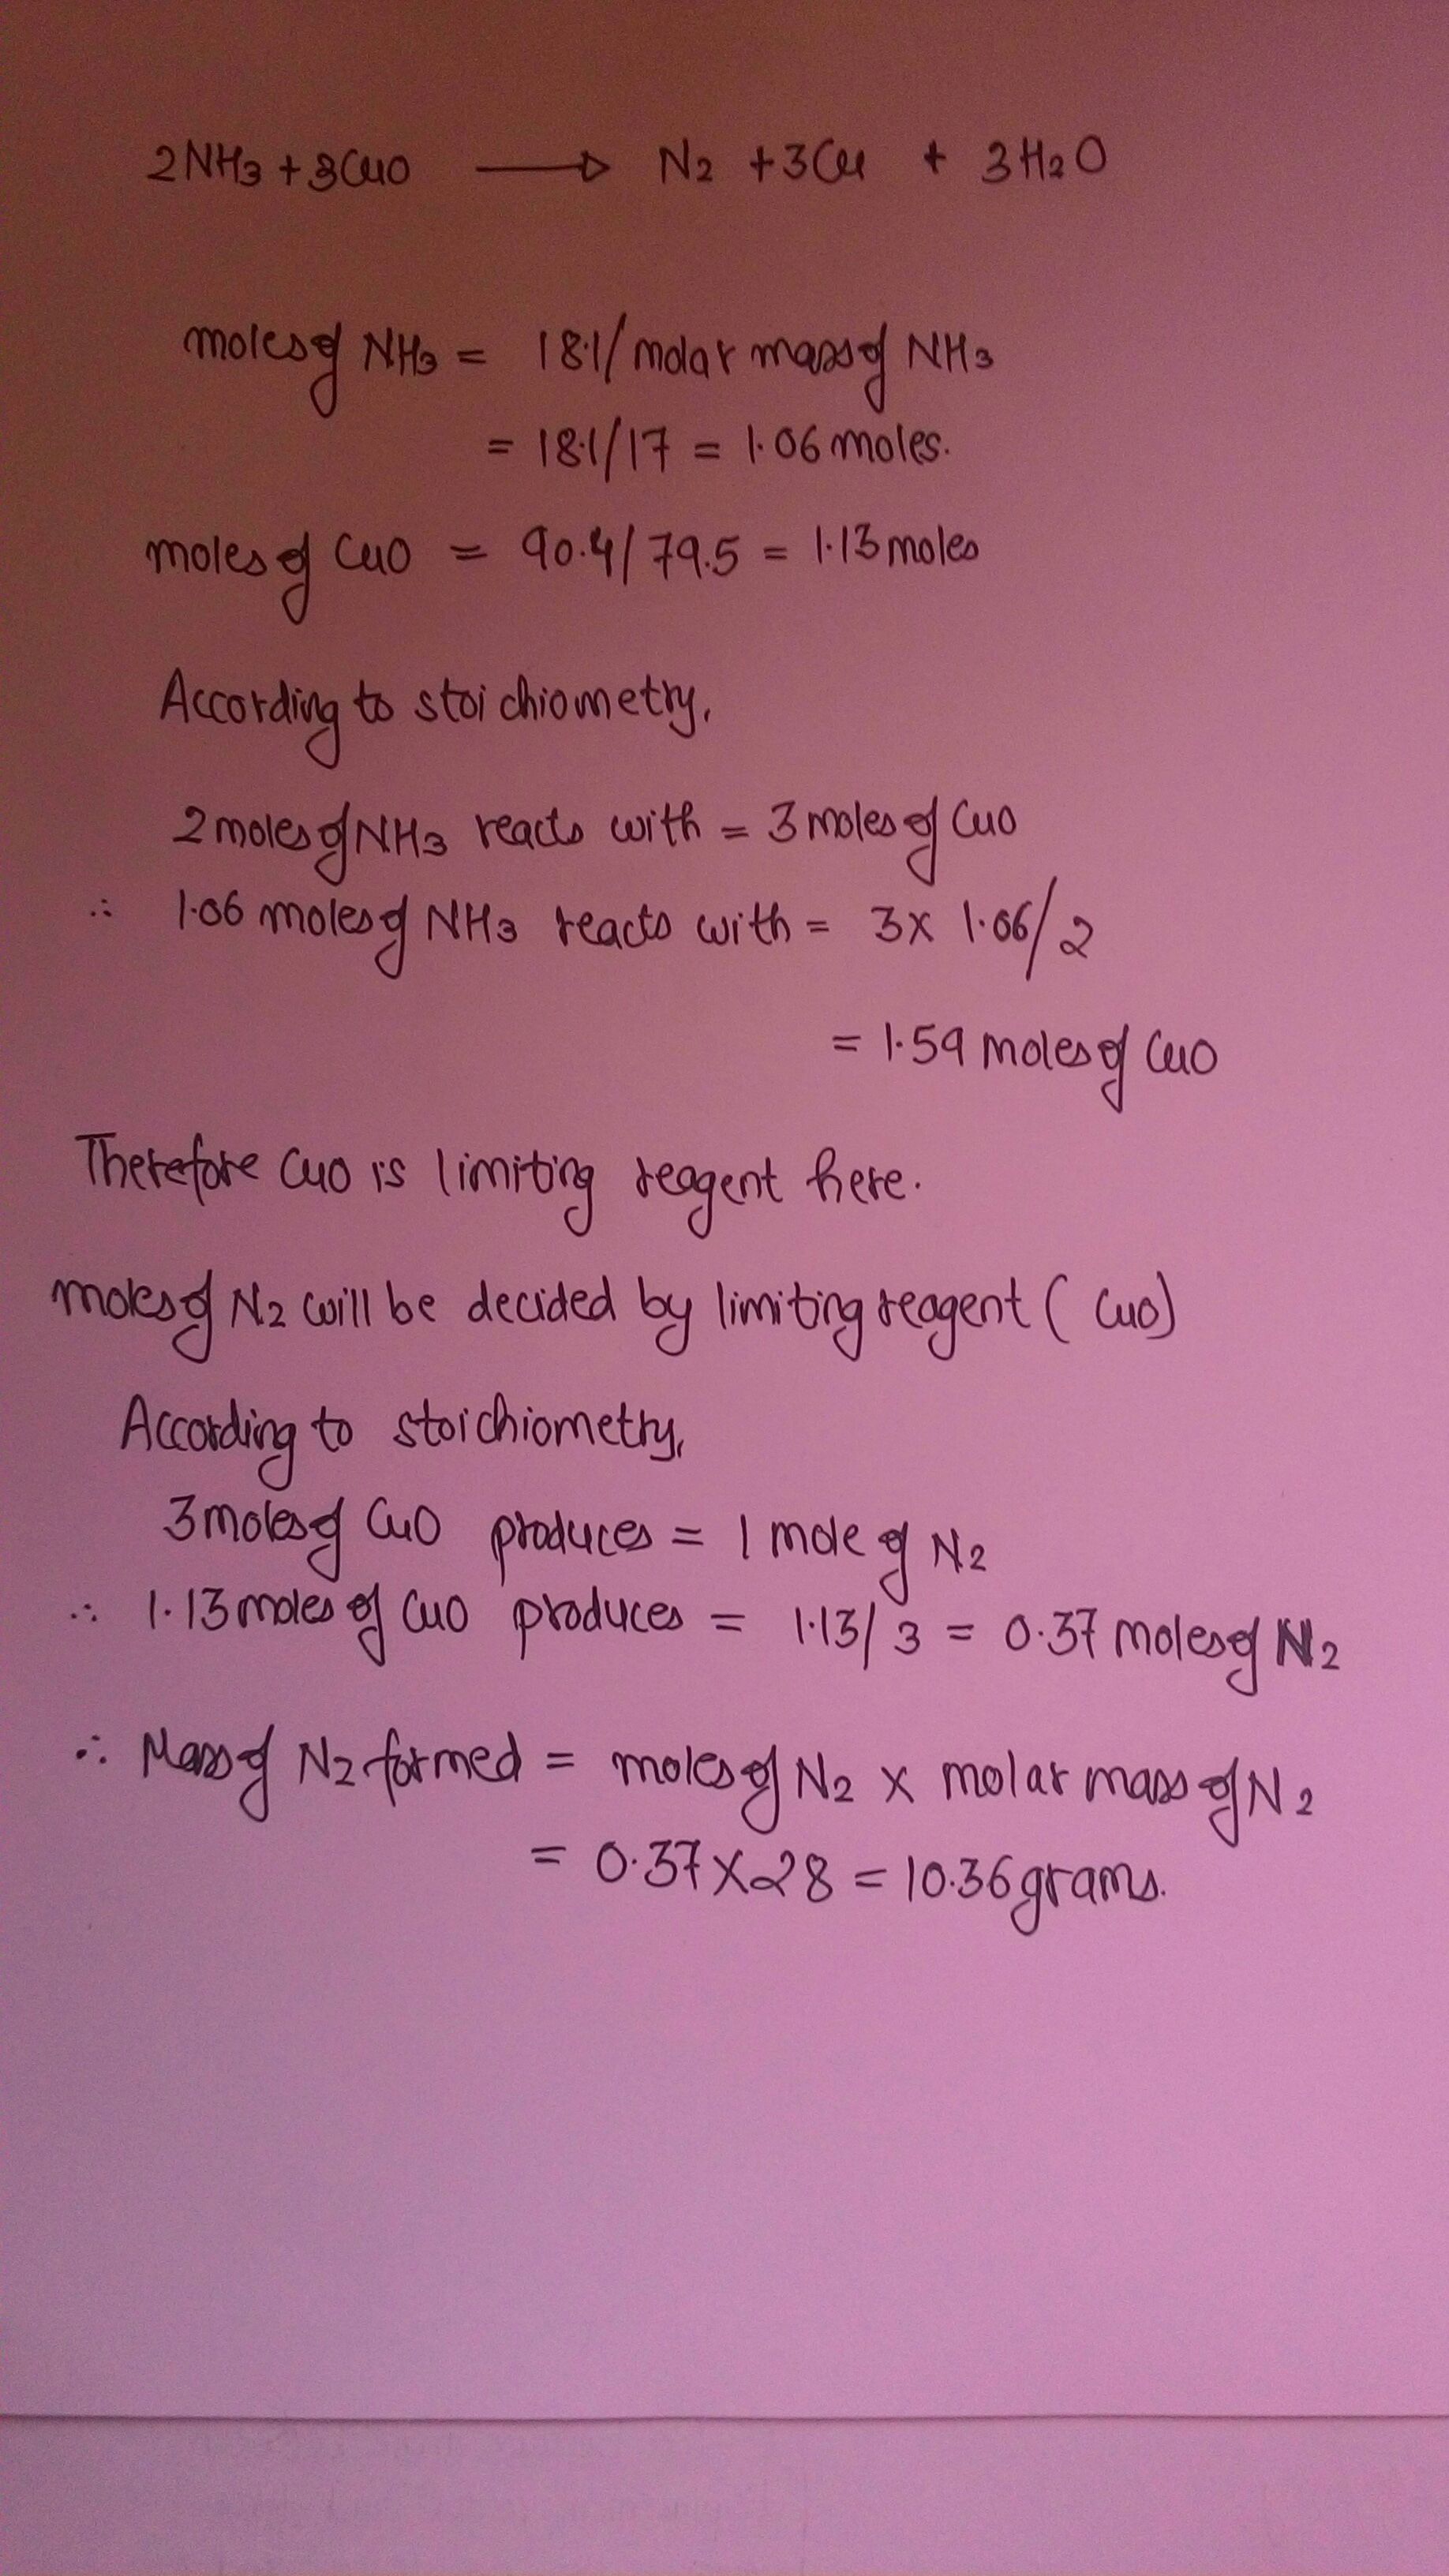 2NH3 + 3CuO → N2 + 3Cu + 3H2O
moles of NH3 = 18.1/molar mass of NH3
= 18.1/17 = 1.06 moles.
moles of CuO = 90.4/79.5 = 1.13 moles
According to stoichiometry,
2 moles of NH3 reacts with = 3 moles of CuO
∴ 1.06 moles of NH3 reacts with = 3x 1.06/2
= 1.59 moles of CuO
Therefore CuO is limiting reagent here.
moles of N2 will be decided by limiting reagent ( CuO)
According to stoichiometry,
3 moles of CuO produces = 1 mole of N2
∴ 1.13 moles of CuO produces = 1.13/3 = 0.37 moles of N2
∴ Mass of N2 formed = moles of N2 x molar mass of N2
= 0.37 X 28 = 10.36 grams.